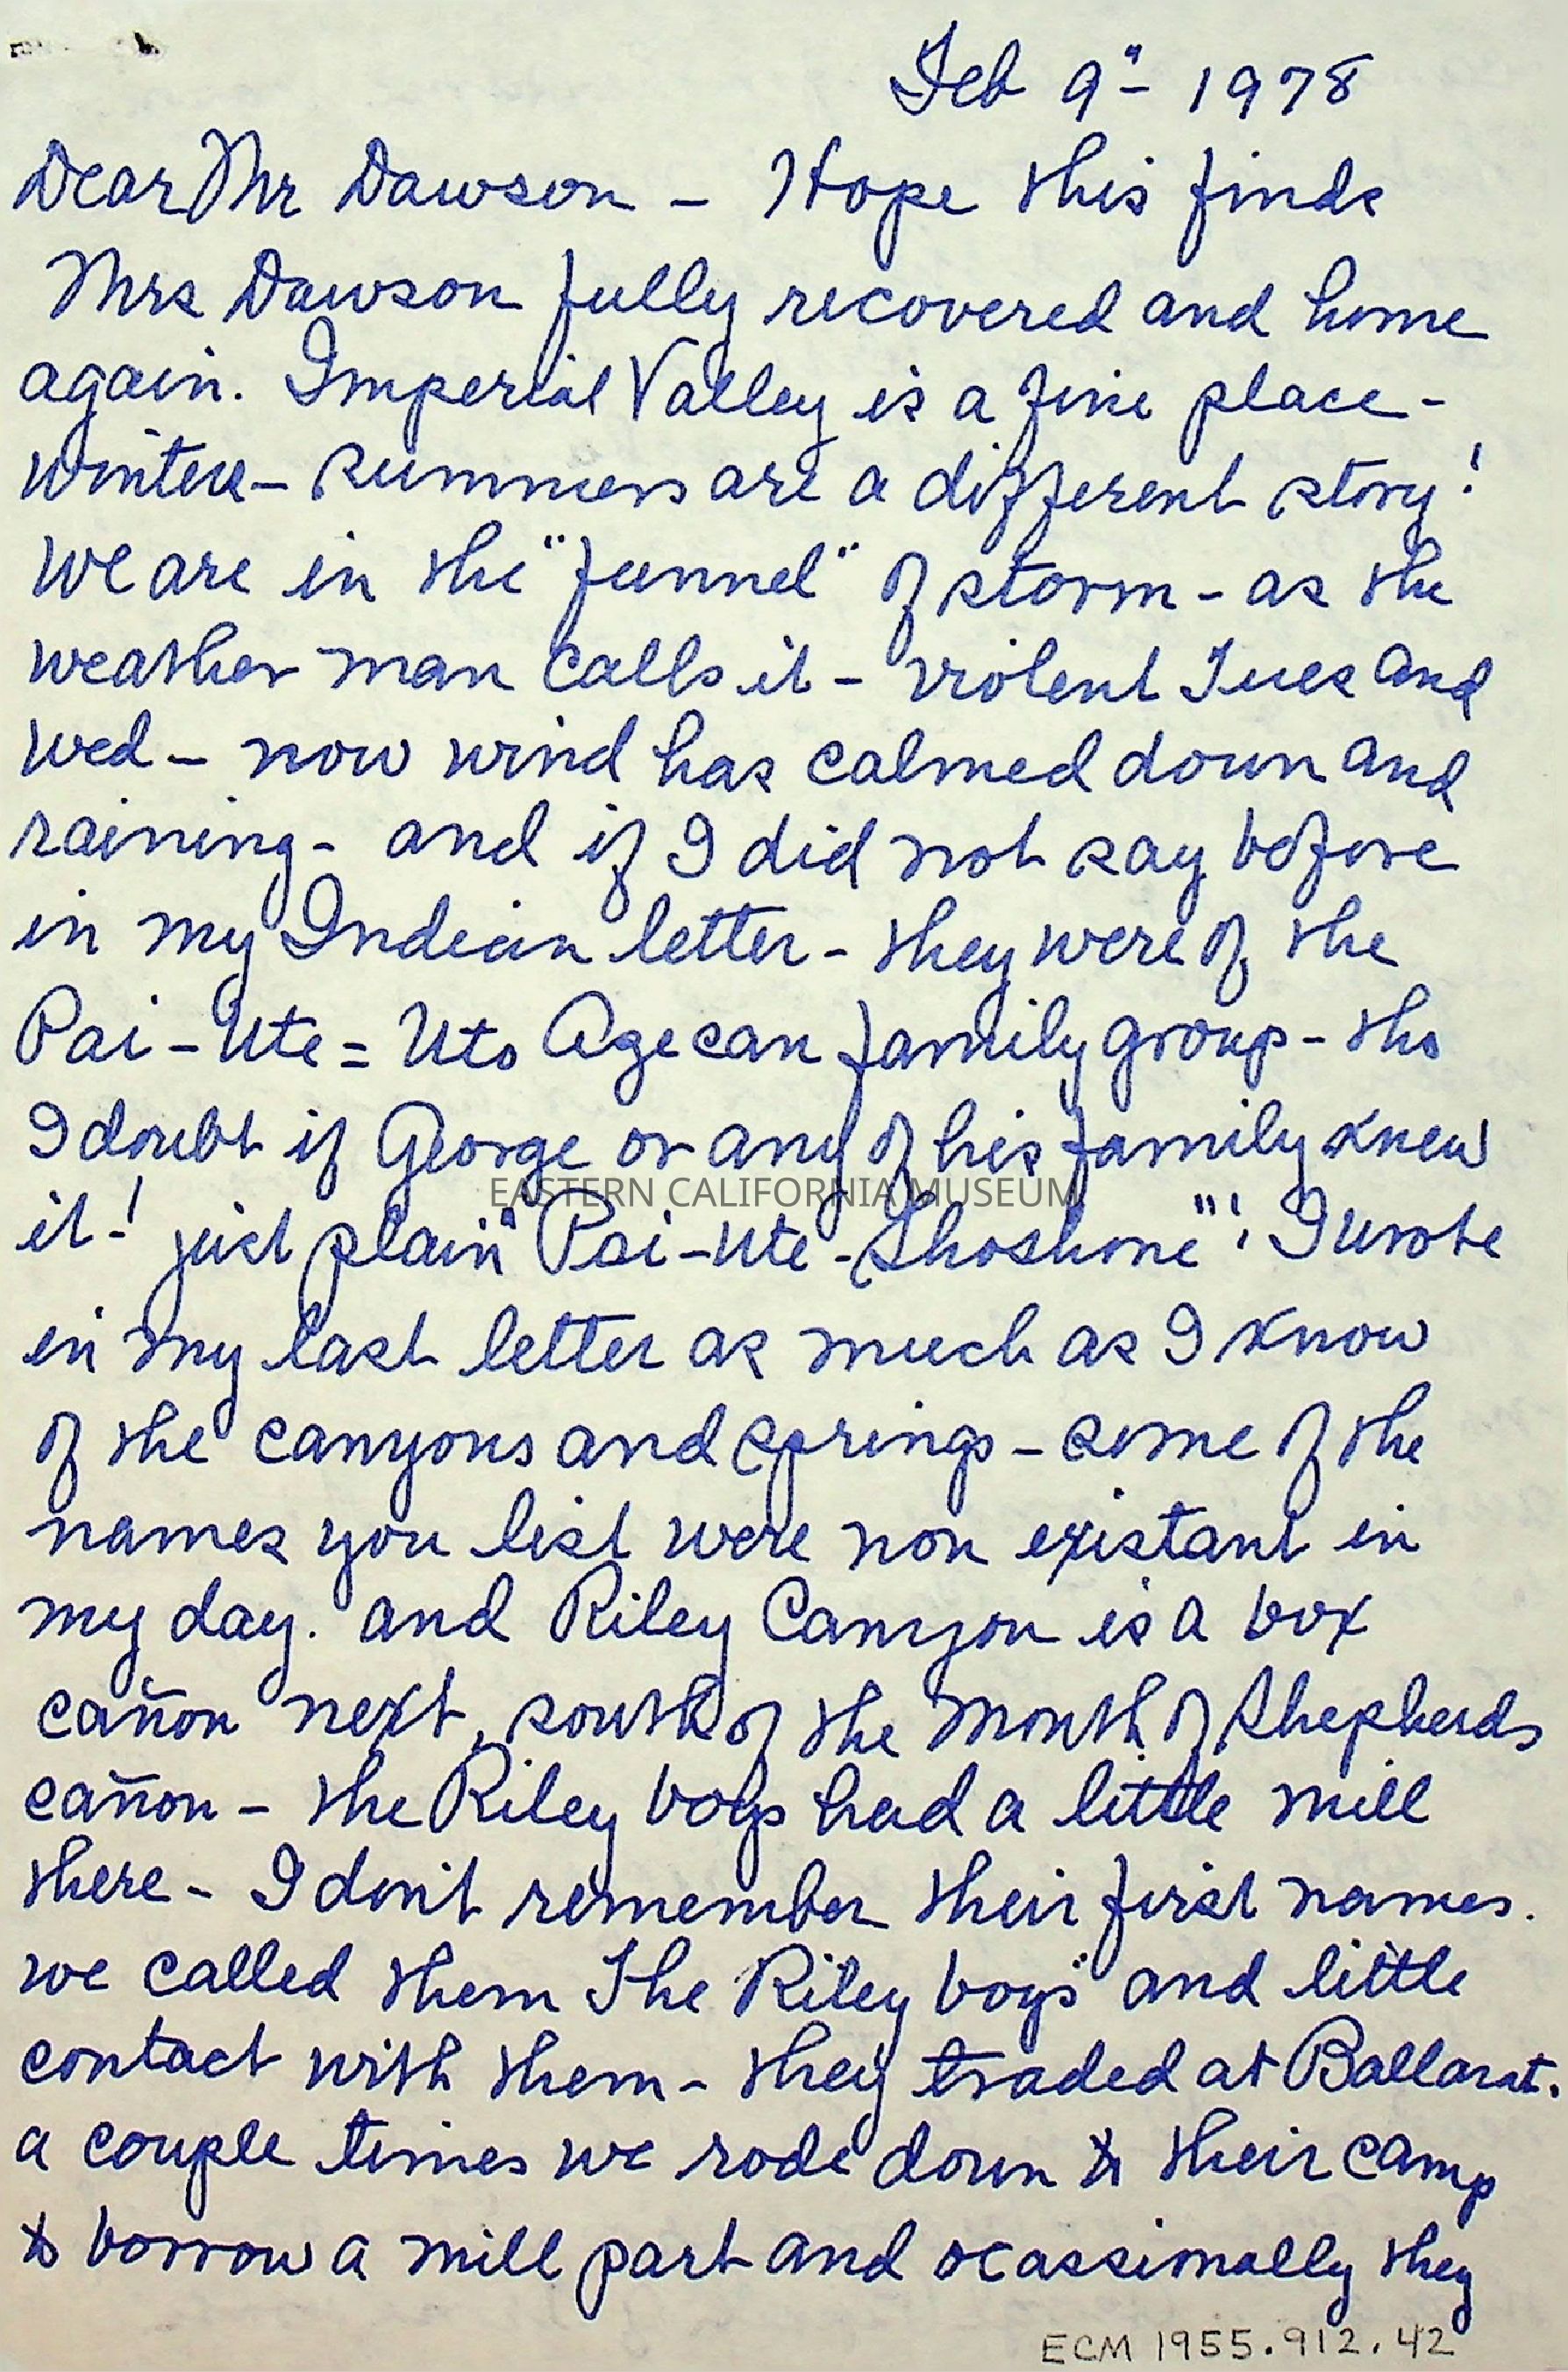 Feb 9" - 1978
Dear Mr Dawson - Hope this finds
Mrs Dawson fully recovered and home
again. Imperial Valley is a fine place -
winters - summers are a different story!
We are in the "funnel" of storm - as the
weather man calls it - violent Tues and
Wed - now wind has calmed down and
raining - and if I did not say before
in my Indian letter - they were of the
Pai-Ute = Uto Agecan family group - tho
I doubt if George or any of his family knew
it! just plain "Pai-Ute-Shoshone"! I wrote
in my last letter as much as I know
of the canyons and springs - some of the
names you list were non existant in
my day. and Riley Canyon is a box
cañon next, south of the mouth of Shepherds
cañon - the Riley boys had a little mill
there - I don't remember their first names.
we called them The Riley boys" and little
contact with them - they traded at Ballarat.
a couple times we rode down to their camp
to borrow a mill part and ocassionally they
EASTERN CALIFORNIA MUSEUM
ECM 1955.912.42